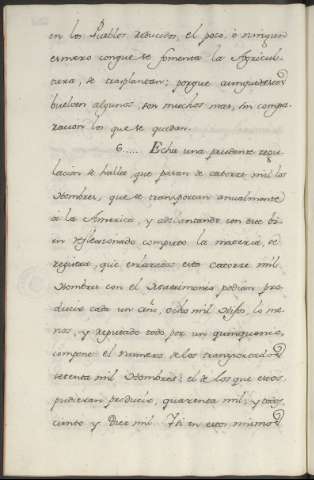 en los Pueblos reducidos, el poco, ò ningun
esmero conque se fomenta la Agricul-
tura, se trasplantan; porque aunque de estos
buelven algunos, son muchos mas, sin compa-
racion los que se quedan.
6.... Echa una prudente regu
lacion se halla, que pasan de catorce mil los
Hombres, que se transportan anualmente
à la America, y adelantando con este bi-
en reflexionado computo la materia, se
registra, que enlazados estos catorce mil
Hombres con el Matrimonio podian pro-
ducir cada un año, ocho mil Hijos, lo me
nos, y reputado todo por un quinquenio,
compone el numero de los transportados
setenta mil Hombres; el de los que estos
pudieran producir, quarenta mil; y todos
ciento y Diez mil. Y si en estos mismos